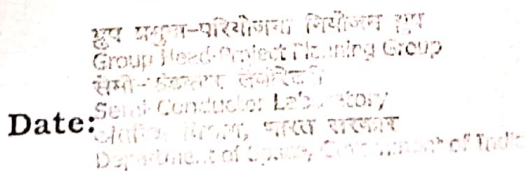 ग्रुप प्रमुख-परियोजना नियोजन ग्रुप
Group Head-Project Planning Group
सेमी-कंडक्टर लेबोरेटरी
Semi-Conductor Laboratory
Date:
भारत सरकार
Department of Space, Government of India